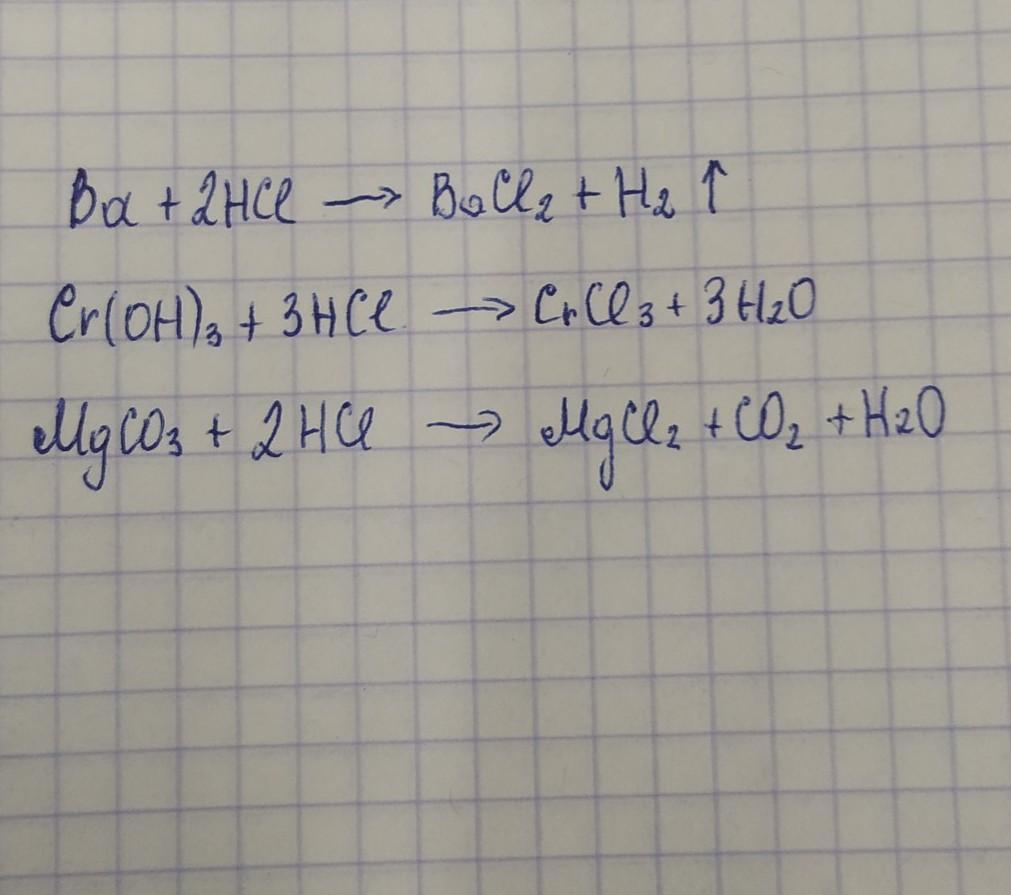 Ba + 2HCl → BaCl₂ + H₂ ↑
Cr(OH)₃ + 3HCl → CrCl₃ + 3H₂O
MgCO₃ + 2HCl → MgCl₂ + CO₂ + H₂O